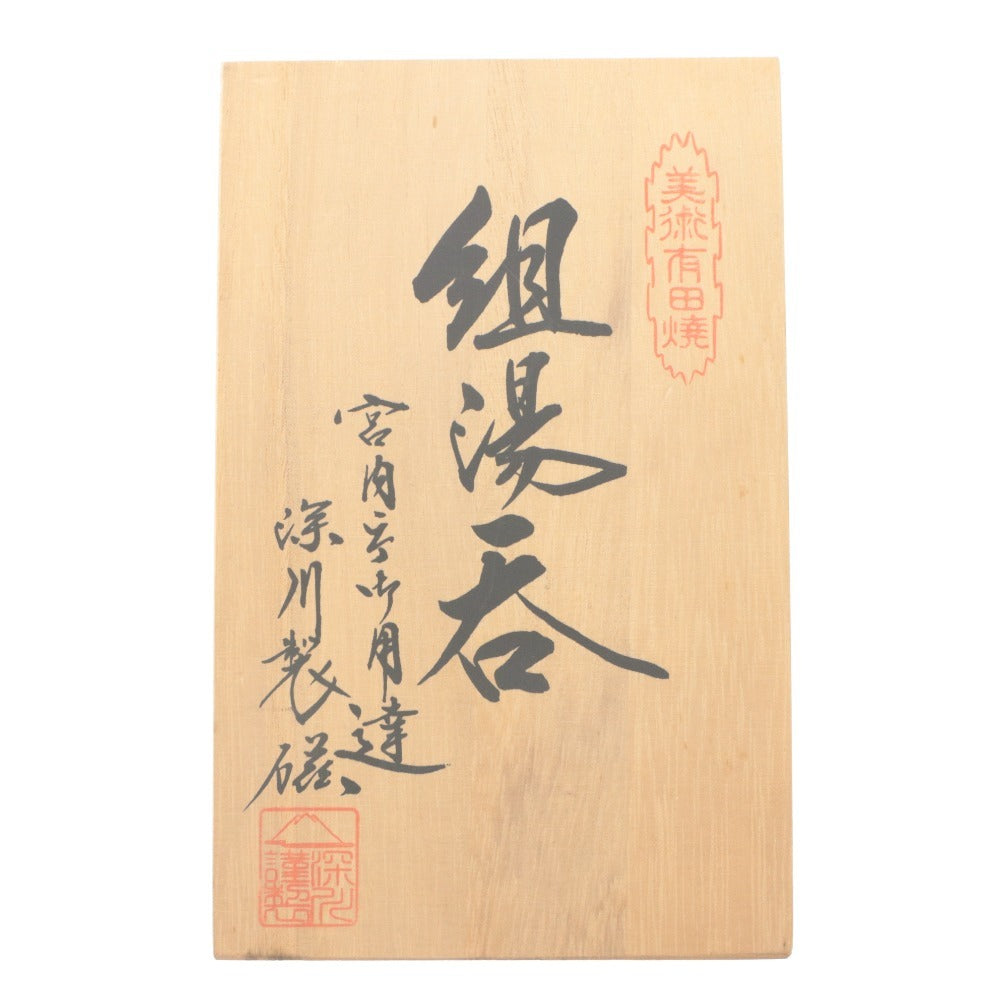 美術有田燒
組湯呑
宮内庁御用達
深川製磁
深川
謹製